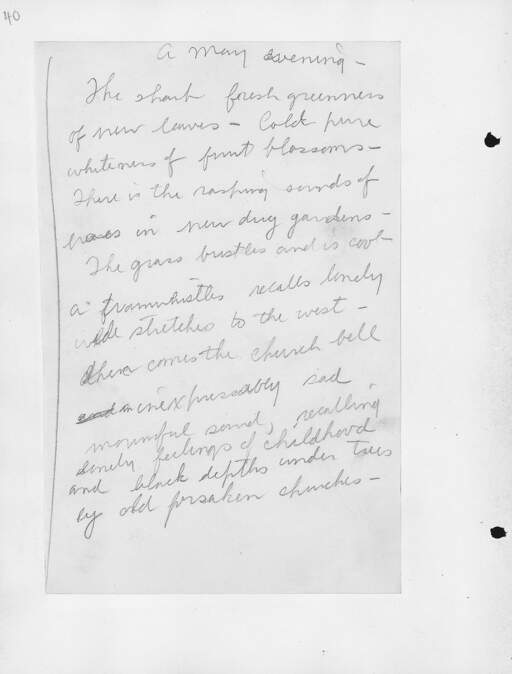 40
A May evening -
The sharp fresh greenness
of new leaves - Cold pure
whiteness of fruit blossoms -
There is the rasping sounds of
in new dug gardens -
The grass bristles and is cool -
A trainwhistles recalls lonely
wide stretches to the west -
then comes the church bell
inexpressably sad
mournful sound, recalling
lonely feelings of childhood
and black depths under trees
by old forsaken churches -